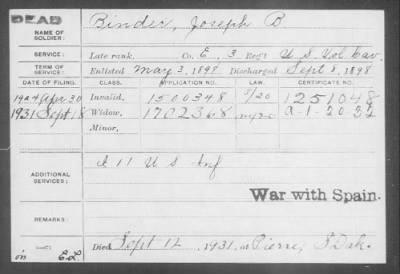 DEAD
NAME OF SOLDIER: Binder, Joseph B
SERVICE: Late rank, Co. E, 3 Reg't U S Vol Cav.
TERM OF SERVICE: Enlisted May 3, 1898 Discharged Sept 8, 1898
DATE OF FILING. CLASS. APPLICATION NO. LAW. CERTIFICATE NO.
1924 Apr 30 Invalid, 1500348 5/20 1251048
1931 Sept 18 Widow, 1702368 A-1-20-32
Minor,
ADDITIONAL SERVICES: I 11 U S Inf
War with Spain.
REMARKS:
Died Sept 12, 1931, at Pierre, S Dak.